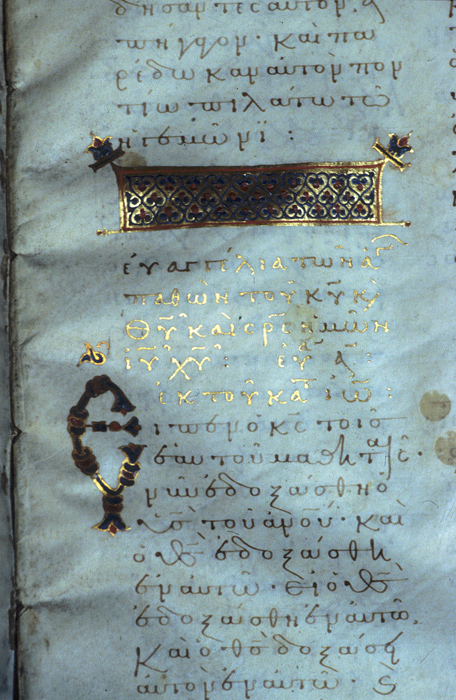 δήσαντες αὐτὸν, ἀ
πήγαγον· καὶ πα
ρέδωκαν αὐτὸν πον
τίω πιλάτω τῶ
ἡγεμόνι :
εὐαγγέλια τῶν ἁγ
παθῶν τοῦ κ̅υ̅ κ
θ̅υ̅ καὶ σ̅ρ̅ς̅ ἡμῶν
ι̅υ̅ χ̅υ̅ : εὐα α̅ :
ἐκ τοῦ κατ ἰω :
Εἶπεν ὁ κ̅ς̅ τοῖς
ἑαυτοῦ μαθηταῖς·
νῦν ἐδοξάσθη ὁ
υ̅ς̅ τοῦ ἀν̅ο̅υ̅· καὶ
ὁ θ̅ς̅ ἐδοξάσθη
ἐν αὐτῶ· εἰ ὁ θ̅ς̅
ἐδοξάσθη ἐν αὐτῶ,
καὶ ὁ θ̅ς̅ δοξάσει
αὐτὸν ἐν αὐτῶ· ϗ